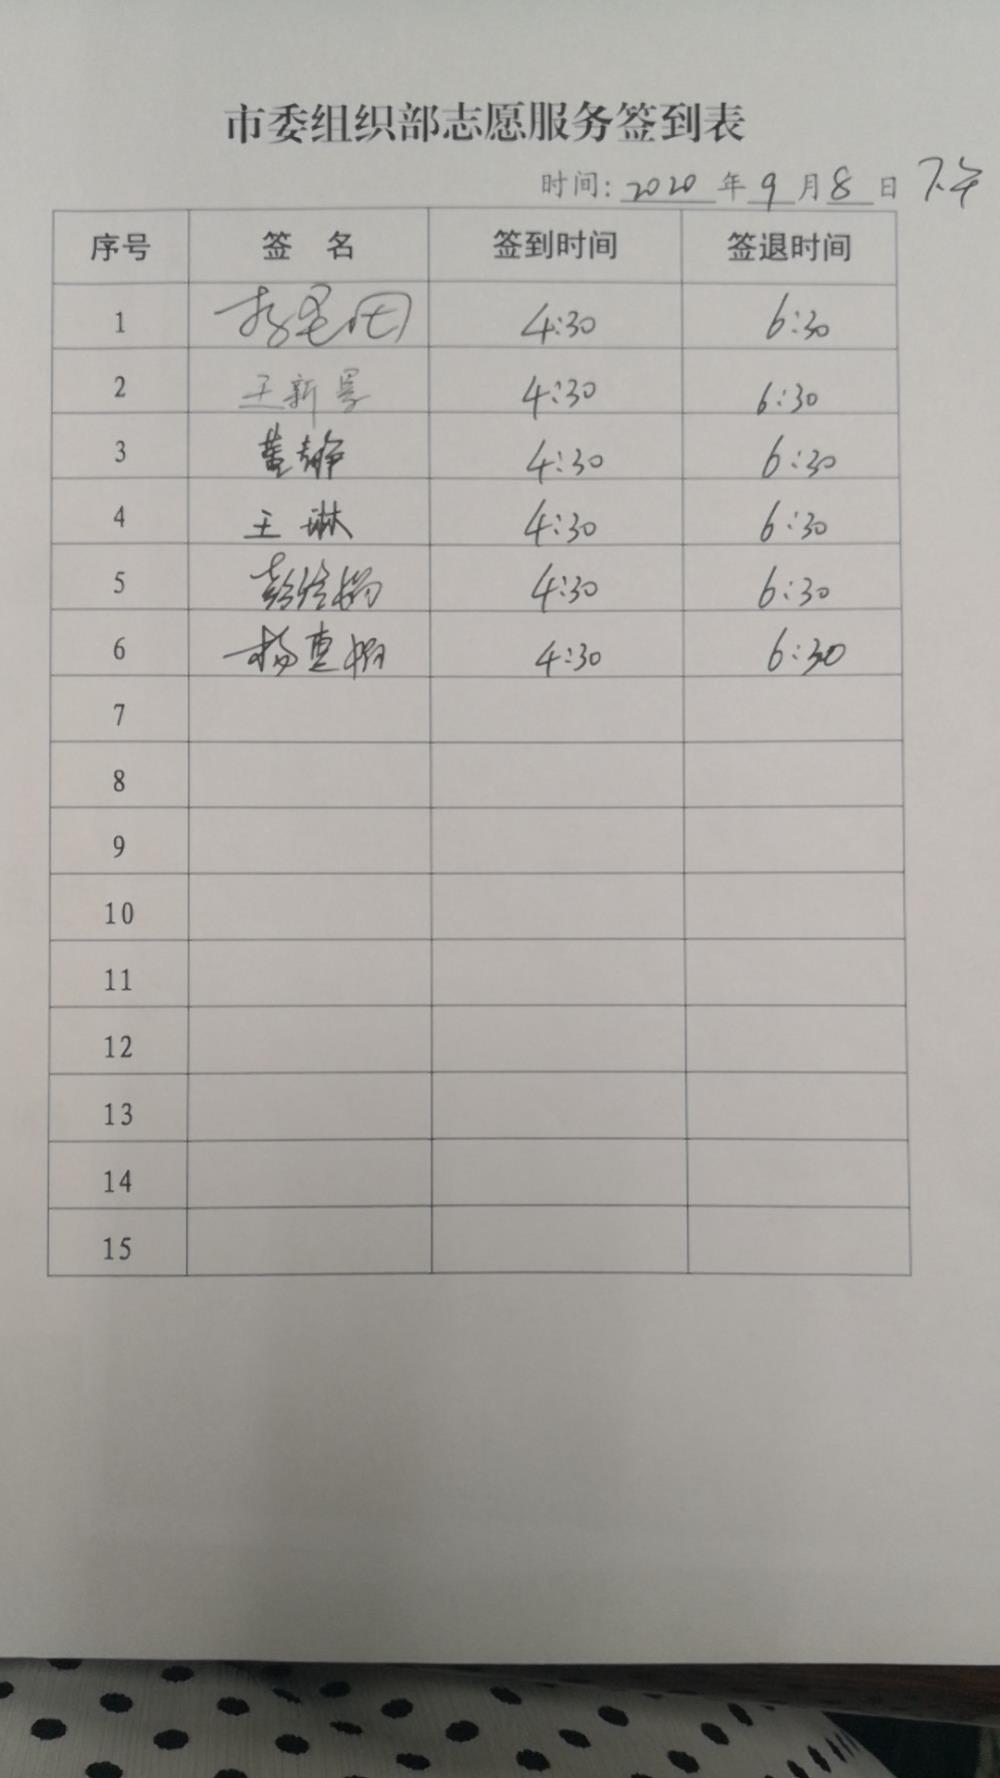 市委组织部志愿服务签到表
时间: 2020 年 9 月 8 日 下午
序号 签 名 签到时间 签退时间
1 4:30 6:30
2 王新景 4:30 6:30
3 黄静 4:30 6:30
4 王琳 4:30 6:30
5 4:30 6:30
6 4:30 6:30
7
8
9
10
11
12
13
14
15